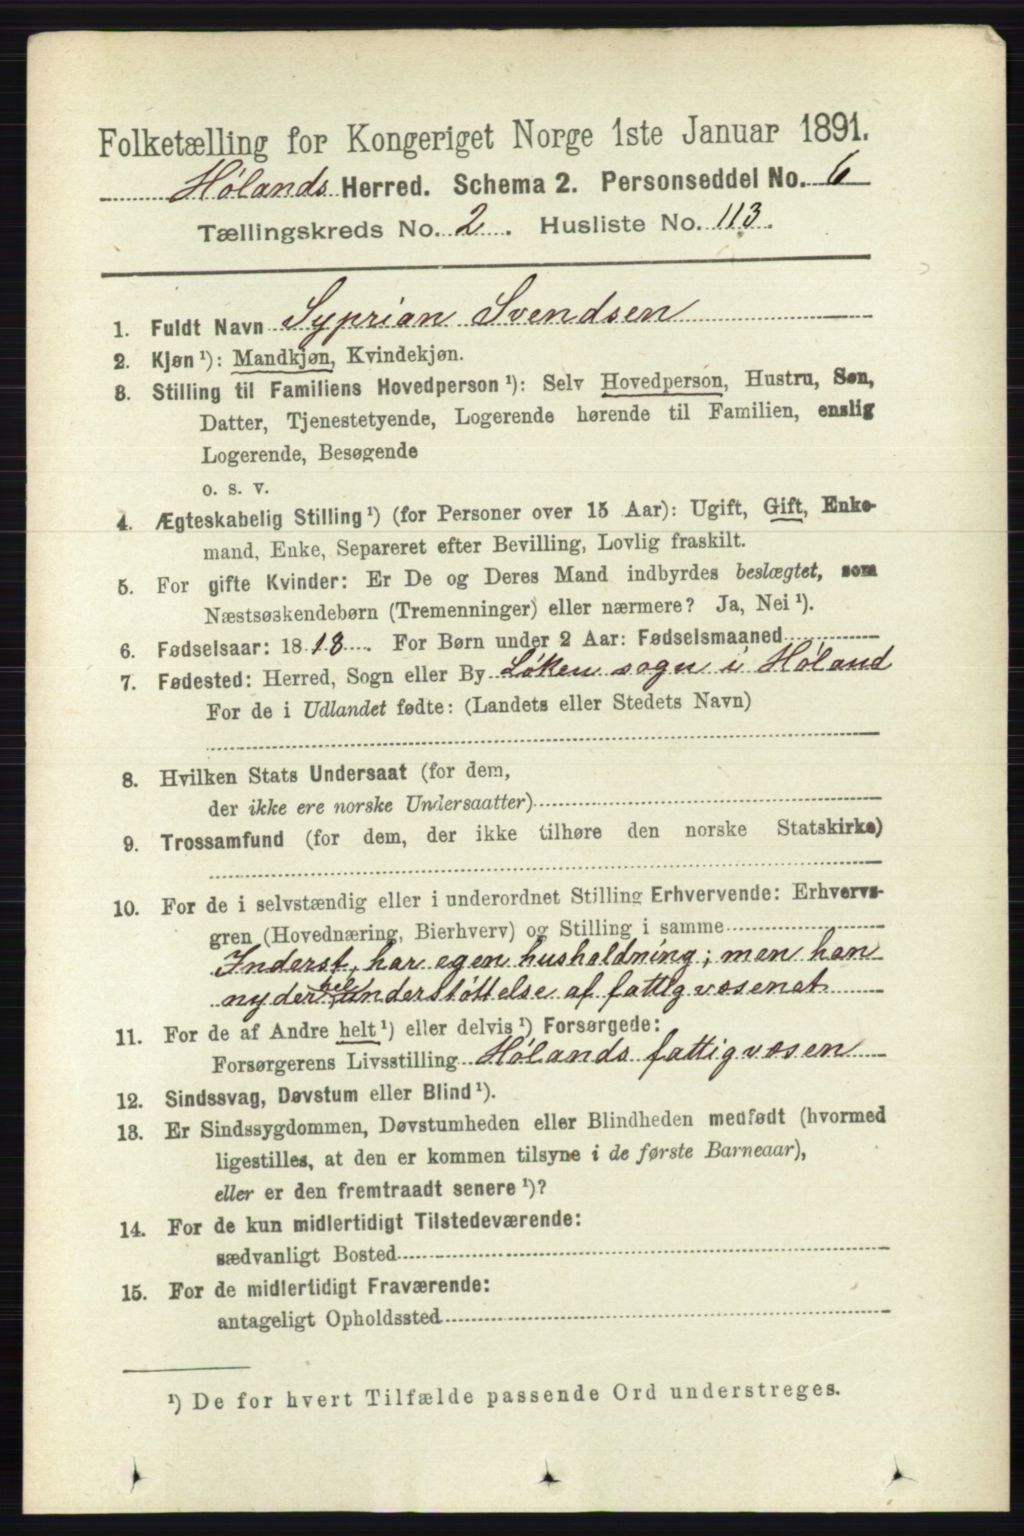 Folketælling for Kongeriget Norge 1ste Januar 1891.
Hølands Herred. Schema 2. Personseddel No. 6
Tællingskreds No. 2. Husliste No. 113.
1. Fuldt Navn Syprian Svendsen
2. Kjøn ¹): Mandkjøn, Kvindekjøn.
3. Stilling til Familiens Hovedperson ¹): Selv Hovedperson, Hustru, Søn,
Datter, Tjenestetyende, Logerende hørende til Familien, enslig
Logerende, Besøgende
o. s. v.
4. Ægteskabelig Stilling ¹) (for Personer over 15 Aar): Ugift, Gift, Enke-
mand, Enke, Separeret efter Bevilling, Lovlig fraskilt.
5. For gifte Kvinder: Er De og Deres Mand indbyrdes beslægtet, som
Næstsøskendebørn (Tremenninger) eller nærmere? Ja, Nei ¹).
6. Fødselsaar: 1818. For Børn under 2 Aar: Fødselsmaaned
7. Fødested: Herred, Sogn eller By Løken sogn i Høland
For de i Udlandet fødte: (Landets eller Stedets Navn)
8. Hvilken Stats Undersaat (for dem,
der ikke ere norske Undersaatter)
9. Trossamfund (for dem, der ikke tilhøre den norske Statskirke)
10. For de i selvstændig eller i underordnet Stilling Erhvervende: Erhvervs-
gren (Hovednæring, Bierhverv) og Stilling i samme
Inderst, har egen husholdning; men han
nyder hel understøttelse af fattigvæsenet
11. For de af Andre helt ¹) eller delvis ¹) Forsørgede:
Forsørgerens Livsstilling Hølands fattigvæsen
12. Sindssvag, Døvstum eller Blind ¹).
13. Er Sindssygdommen, Døvstumheden eller Blindheden medfødt (hvormed
ligestilles, at den er kommen tilsyne i de første Barneaar),
eller er den fremtraadt senere ¹)?
14. For de kun midlertidigt Tilstedeværende:
sædvanligt Bosted
15. For de midlertidigt Fraværende:
antageligt Opholdssted
¹) De for hvert Tilfælde passende Ord understreges.